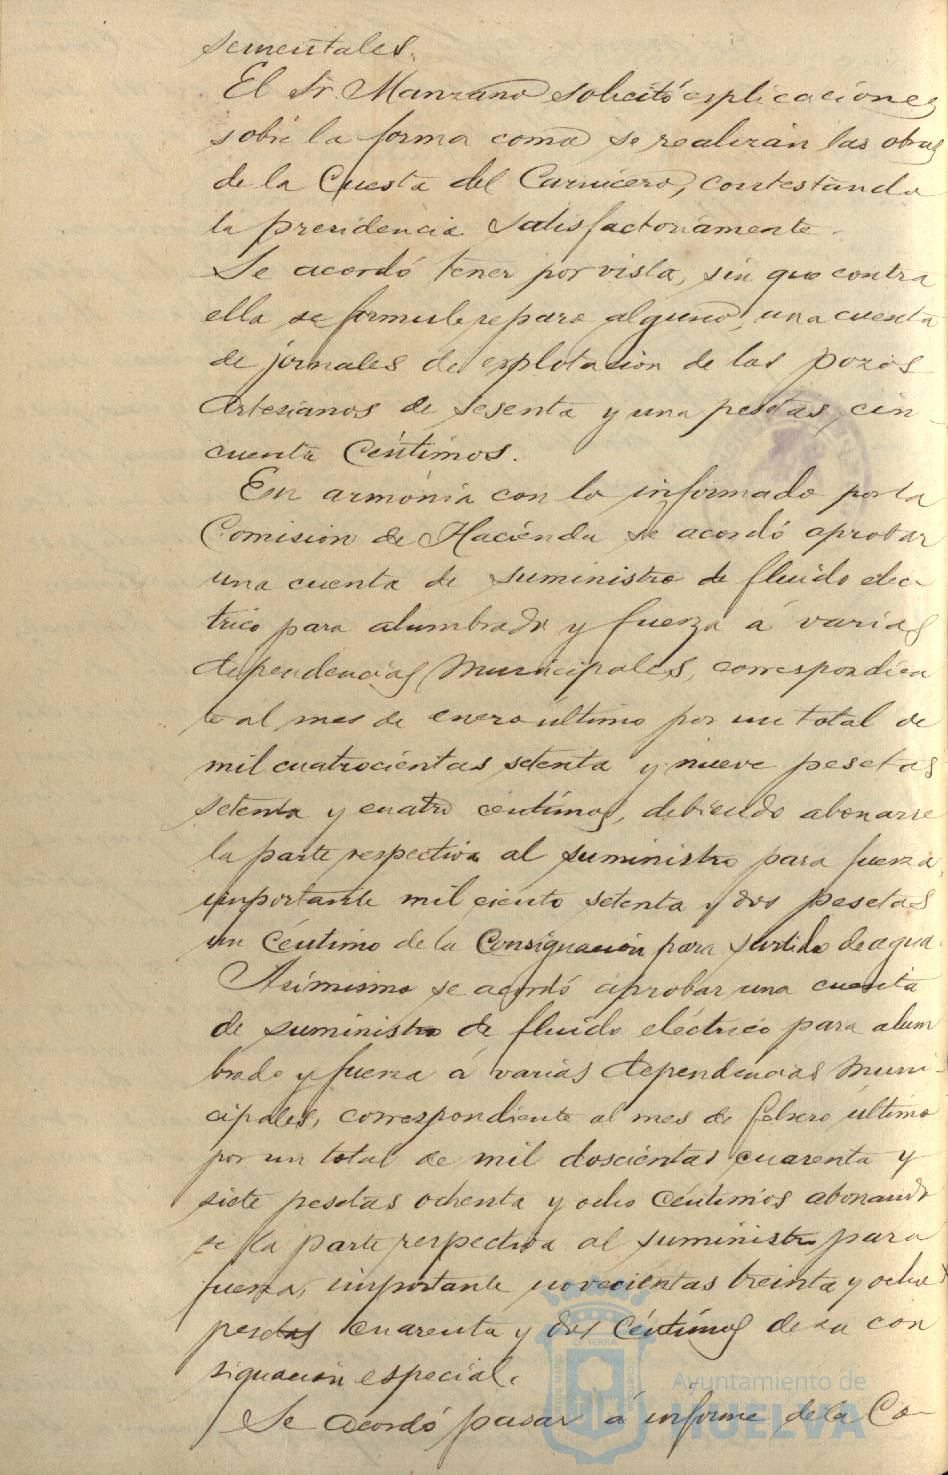 sementales.
El Sr. Manzano solicitó esplicaciónes
sobre la forma como se realizan las obras
de la Cuesta del Carnicero, contestando
la presidencia satisfactoriamente.
Se acordó tener por vista, sin que contra
ella se formule reparo alguno, una cuenta
de jornales de esplotación de los pozos
Artesianos de sesenta y una pesetas cin
cuenta Céntimos.
En armónia con lo informado por la
Comision de Haciénda se acordó aprobar
una cuenta de suministro de fluido eléc
trico para alumbrado y fuerza á varias
dependencias Municipales, correspondien
te al mes de enero ultimo por un total de
mil cuatrocientas setenta y nueve pesetas
setenta y cuatro céntimos, debiendo abonarse
la parte respectiva al suministro para fuerza,
importante mil ciento setenta y dos pesetas
un Céntimo de la Consignación para surtido de agua.
Asimismo se acordó aprobar una cuenta
de suministro de fluido eléctrico para alum
brado y fuerza á varias dependencias Muni-
cipales, correspondiente al mes de febrero último
por un total de mil doscientas cuarenta y
siete pesetas ochenta y ocho Céntimos abonando
se la parte respectiva al suministro para
fuerza, importante novecientas treinta y ocho
pesetas cuarenta y dos Céntimos de su con
signación especial.
Se acordó pasar á informe de la Co-
Ayuntamiento de
HUELVA